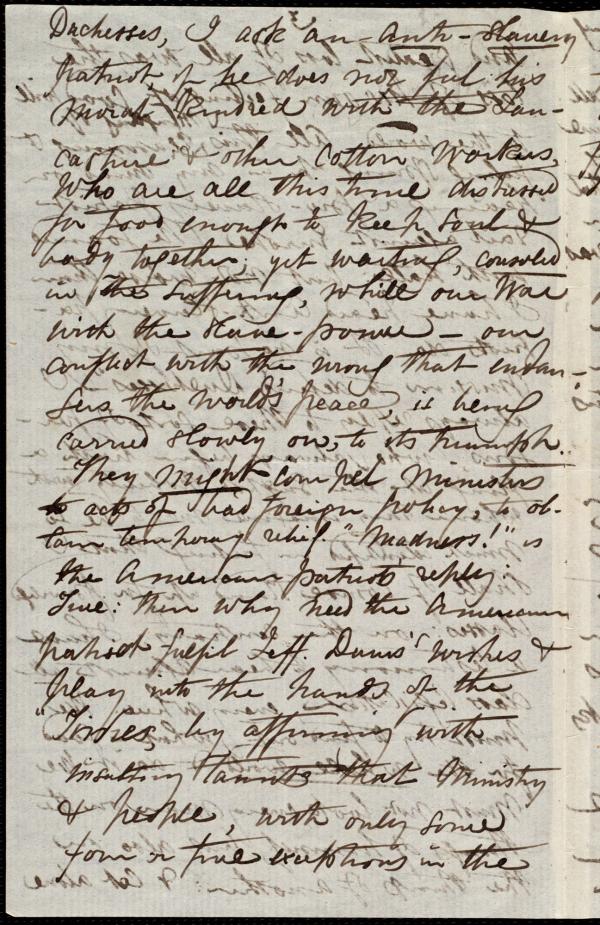 Duchesses, I ask an anti-slavery
patriot, if he does not feel his
moral kindred with the Lan-
cashire & other cotton workers,
who are all this time distressed
for food enough to keep soul &
body together; yet waiting, consoled
in the suffering, while our War
with the slave-power - our
conflict with the wrong that endan-
gers the world's peace, is being
carried slowly on, to its triumph.
They might compel Ministers
to acts of bad foreign policy, to ob-
tain temporary relief. "Madness!" is
the American patriot's reply:
True: then why need the American
patriot fulfil Jeff. Davis' wishes &
play into the hands of the
"Times, by affirming with
insulting taunts that Ministry
& people, with only some
four or five exceptions in the